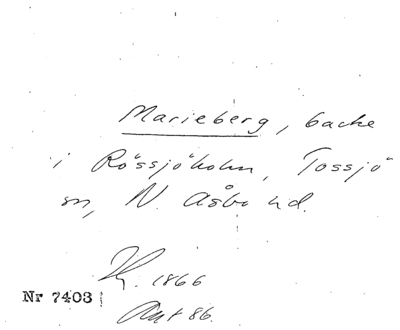 Marieberg, backe
i Rössjöholm, Tossjö
sn, N. Åsbo hd.
1866
Nr 7403
86.